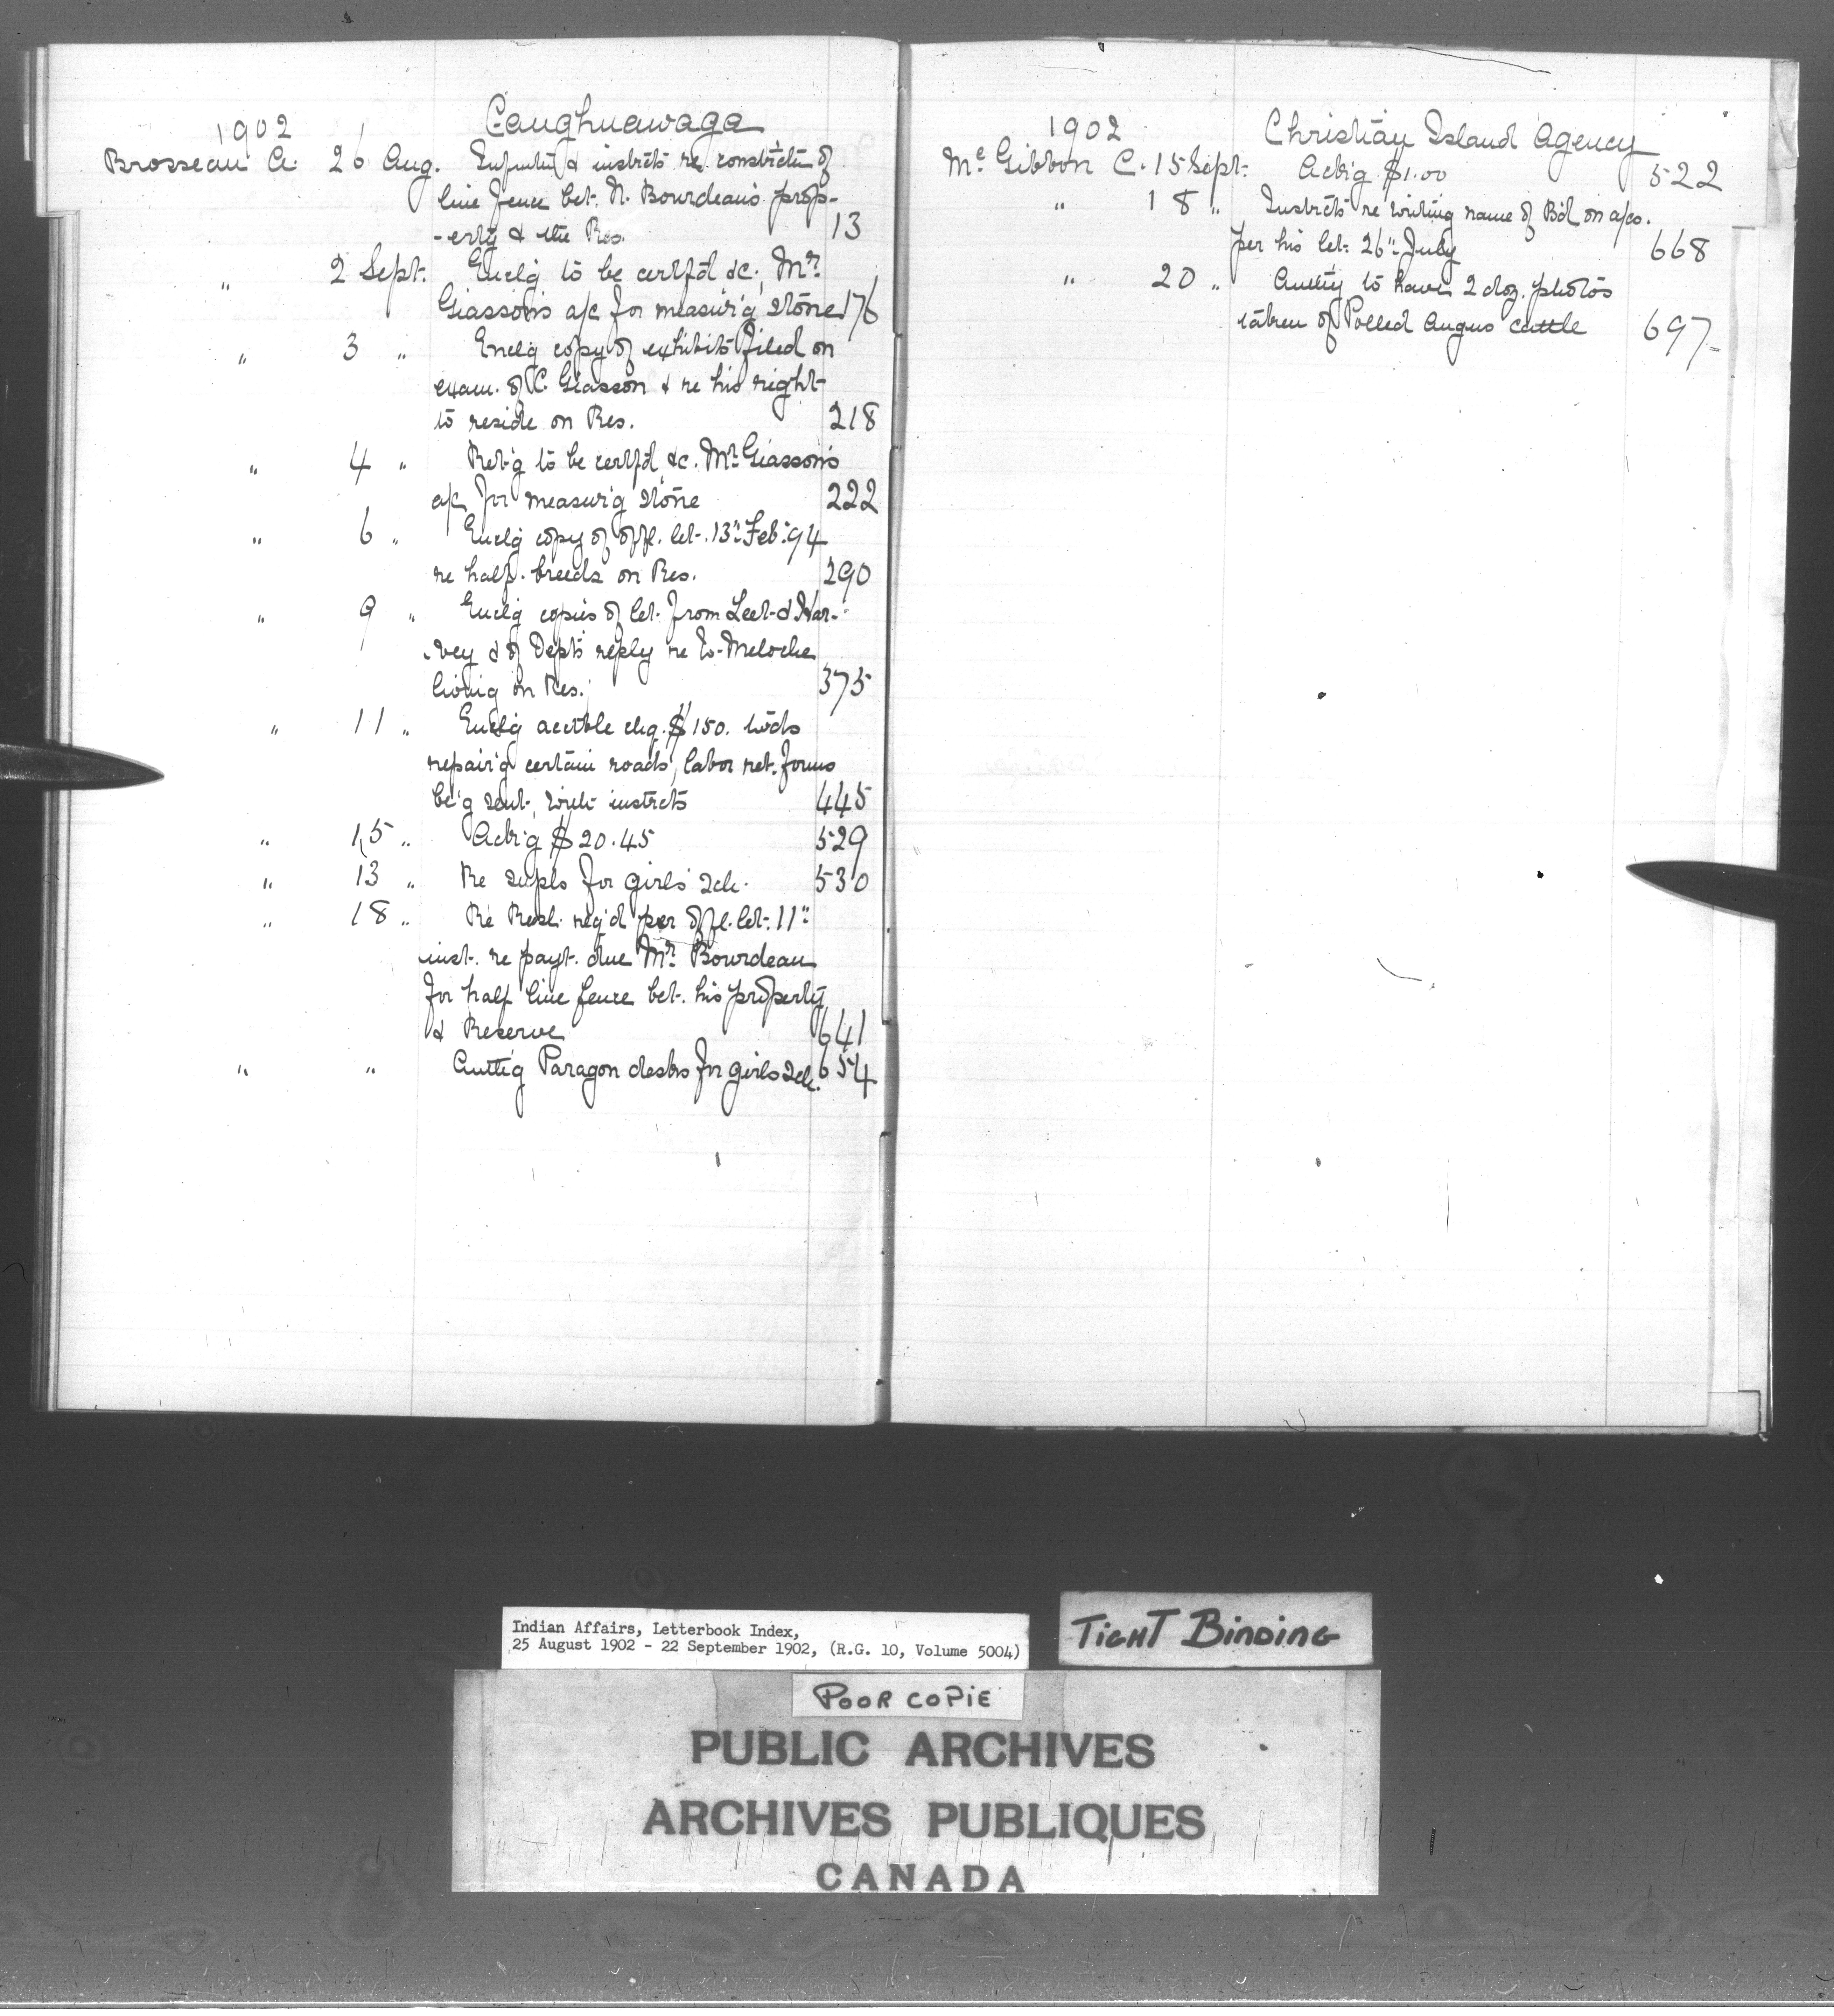 1902 Caughnawaga
Brosseau A. 26 Aug. & instrcts re constrctn of
line fence bet. N. Bourdeau's prop-
-erty & the Res. 13
" 2 Sept. Enclg to be certf'd &c, Mr.
Giasson's a/c for measur'g stone 176
" 3 " Enclg copy of exhibits filed on
exam. of C. Giasson & re his right
to reside on Res. 218
" 4 " Ret'g to be certf'd &c. Mr. Giasson's
a/c for measur'g stone 222
" 6 " Enclg copy of offl. let. 13" Feb. 94
re half-breeds on Res. 290
" 9 " Enclg copies of let. from Leet & Har-
-vey & of Dept's reply re Meloche
living on Res. 375
" 11 " Enclg acctble chq. $150. tw'ds
repair'g certain roads, labor ret. forms
be'g sent, with instrcts 445
" 15 " Ack'g $20.45 529
" 13 " Re supls for girls' sch. 530
" 18 " Re Resl. req'd per offl. let. 11"
inst. re payt. due Mr. Bourdeau
for half line fence bet. his property
& Reserve 641
" " Auth'g Paragon desks for girls sch. 654
1902 Christian Island Agency
McGibbon C. 15 Sept. Ack'g $1.00 522
" 18 " Instrcts re writing name of B'd on a/cs.
per his let. 26" July 668
" 20 " Auth'y to have 2 doz. photos
taken of Polled Angus cattle 697
Indian Affairs, Letterbook Index,
25 August 1902 - 22 September 1902, (R.G. 10, Volume 5004)
TIGHT BINDING
POOR COPIE
PUBLIC ARCHIVES
ARCHIVES PUBLIQUES
CANADA